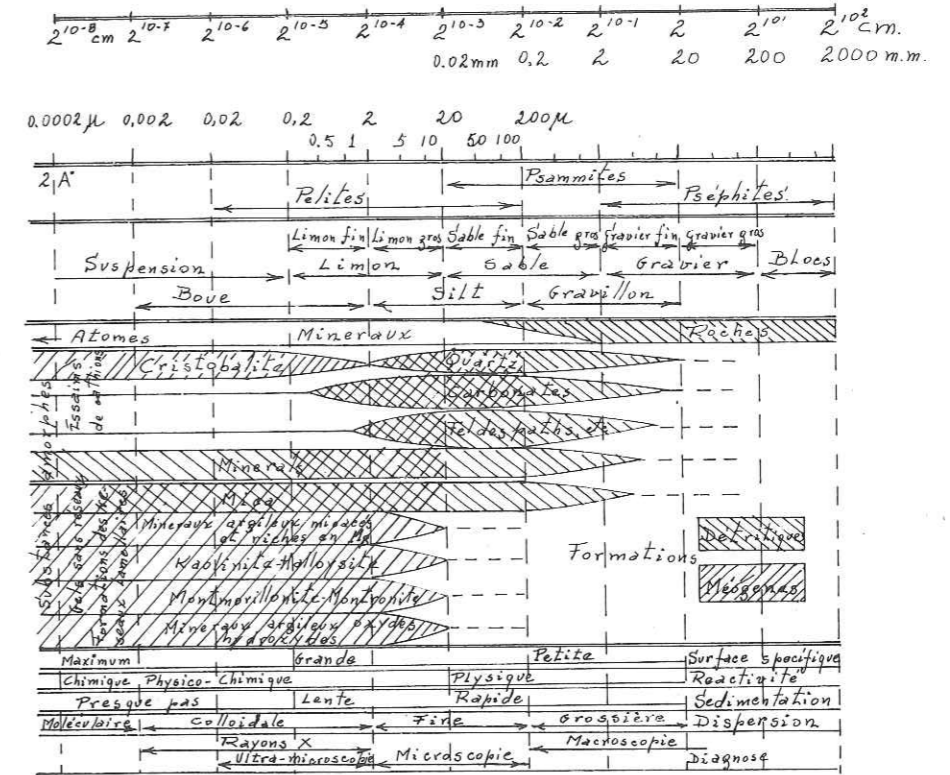 2^10-8 cm 2^10-7 2^10-6 2^10-5 2^10-4 2^10-3 2^10-2 2^10-1 2 2^10^1 2^10^2 cm.
0.02mm 0,2 2 20 200 2000 m.m.
0.0002 µ 0,002 0,02 0,2 2 20 200µ
0.5 1 5 10 50 100
2 A°
Psammites
Pelites Pséphites
Limon fin Limon gros Sable fin Sable gros Gravier fin Gravier gros
Suspension Limon Sable Gravier Blocs
Boue Silt Gravillon
Atomes Mineraux Roches
Cristobalite Quartz
Carbonates
Feldespaths, etc
Minerals
Mica
Mineraux argileux micacés
et riches en Mg
Kaolinite-Halloysite
Montmorillonite-Montronite
Mineraux argileux oxydes
hydroxydes
Substances amorphes
Essaims
de cathions
Vers sans réseaux
Formations des re-
seaux lamellaires
Formations
Detritiques
Méogenas
Maximum Grande Petite Surface spécifique
Chimique Physico-Chimique Plysique Reactivité
Presque pas Lente Rapide Sedimentation
Moléculaire Colloidale Fine Grossière Dispersion
Rayons X Macroscopie
Ultra-microscopie Microscopie Diagnose